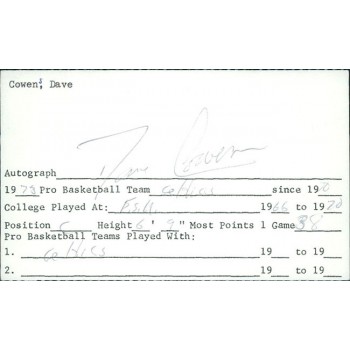 Cowens, Dave
Autograph Dave Cowens
1973 Pro Basketball Team Celtics since 1970
College Played At: F.S.U. 1966 to 1970
Position C Height 6' 9" Most Points 1 Game 38
Pro Basketball Teams Played With:
1. Celtics 19 to 19
2. 19 to 19